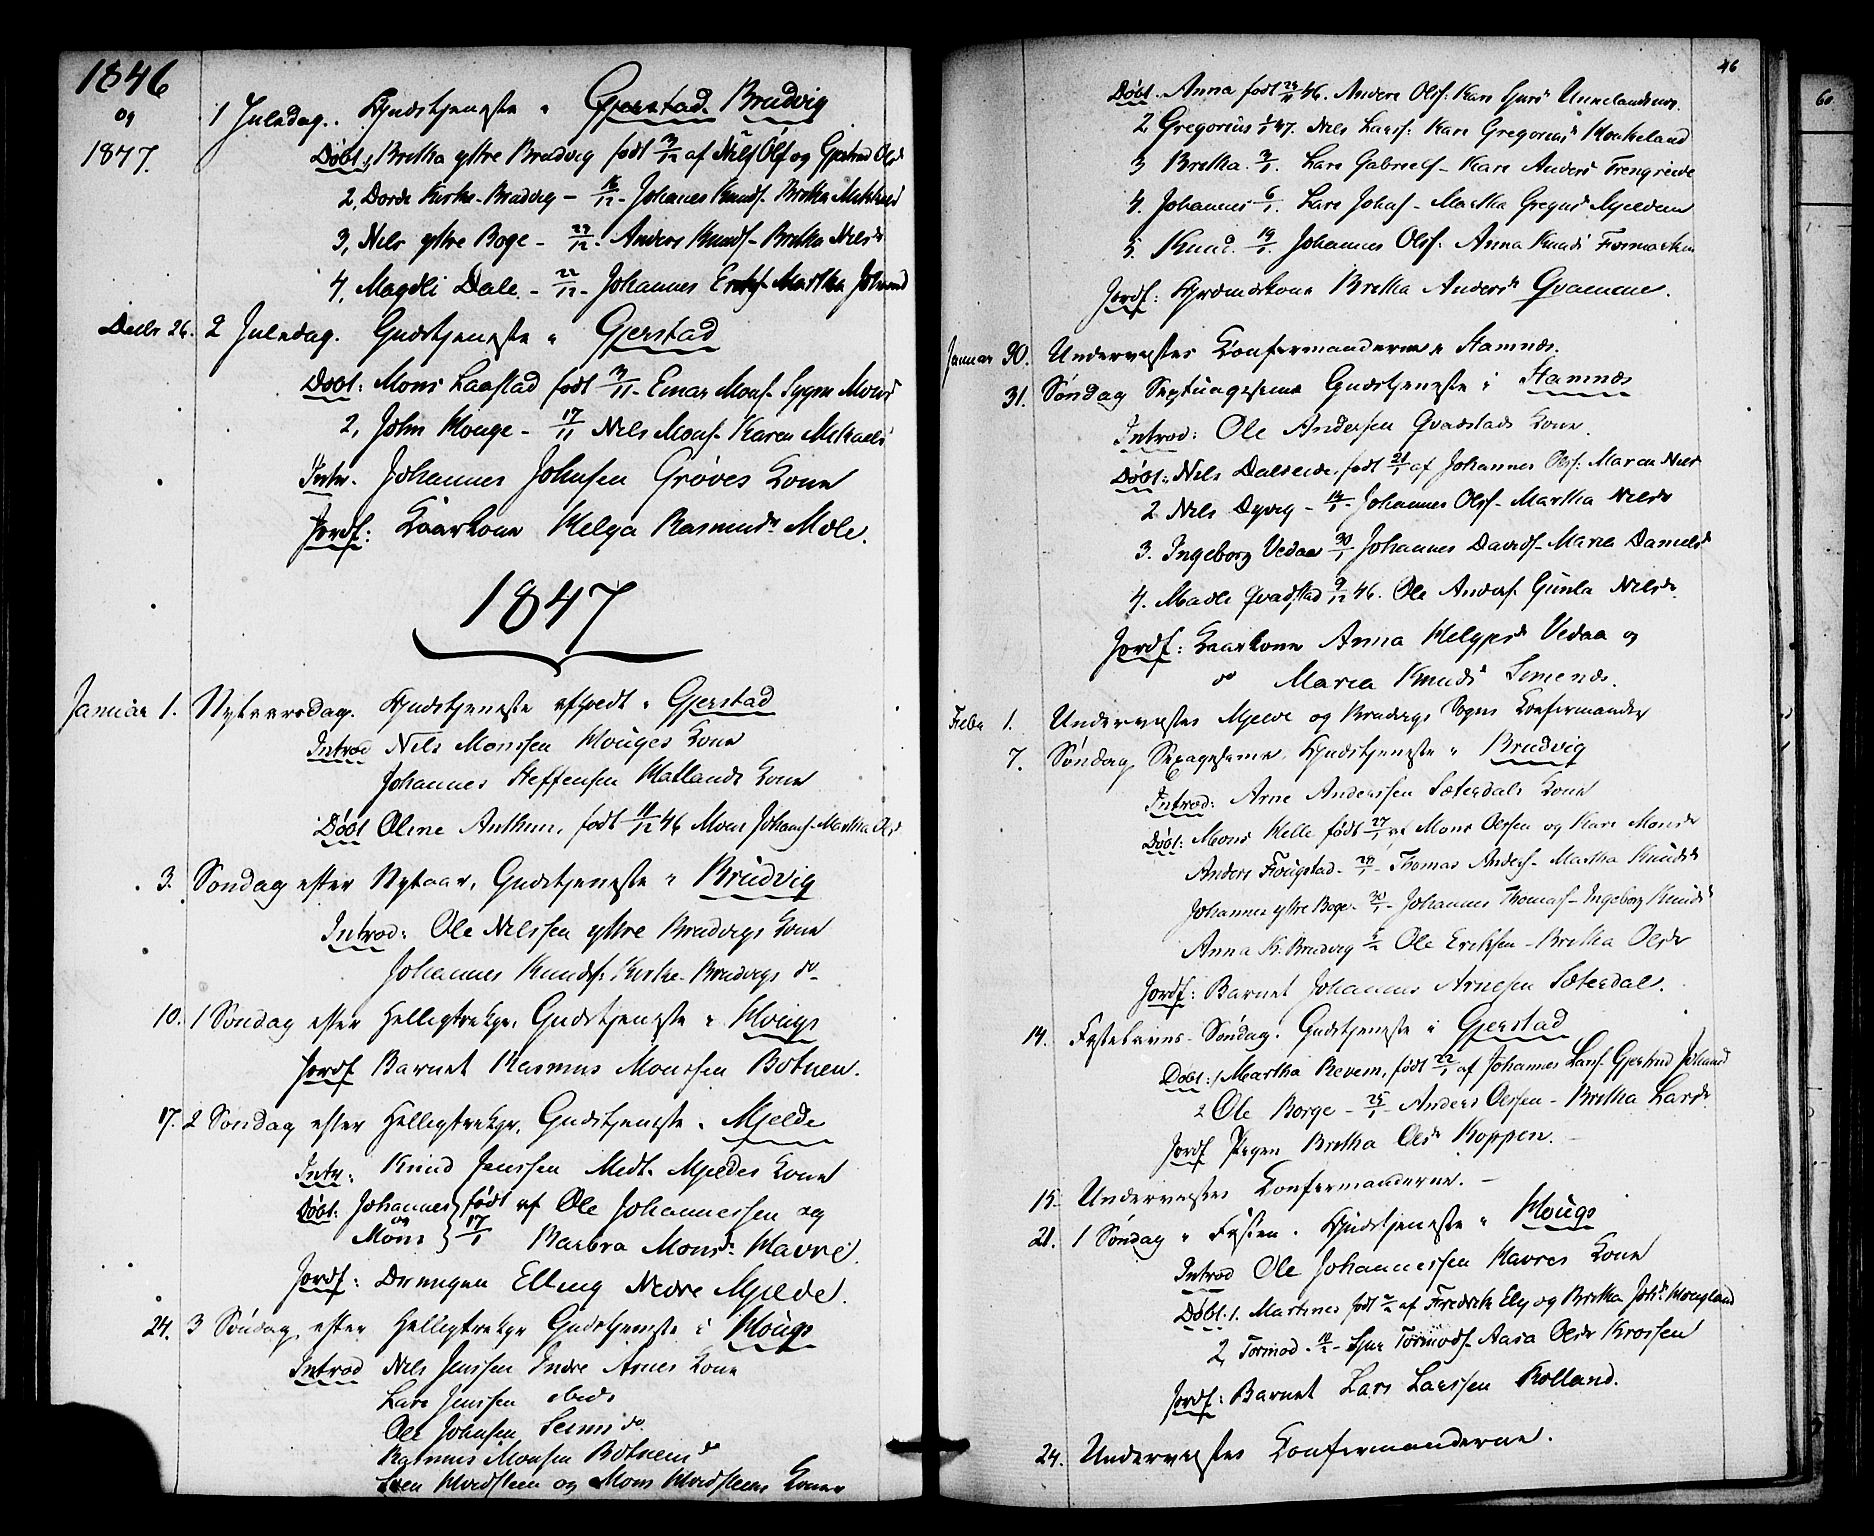 1846
og
1847.
1 Juledag. Gudstjeneste i Gjerstad Brudvig
Døbt: 1, Brytha yttre Brudvig født 3/12 af Nils Ols og Gjertrud Olsd
2, Dorde Kirke-Brudvig - 16/12 - Johannes Knuds. Brytha Mikkels
3, Nils yttre Boge - 27/12 - Anders Knuds - Brytha Nilsd
4, Magdli Dale - 22/12 - Johannes Erichs - Martha Johannd
Decbr 26. 2 Juledag. Gudstjeneste i Gjerstad
Døbt: Mons Laastad født 3/11 - Einar Mons. Sygni Monsd
2, John Houge - 17/11 Nils Mons. Karen Mikaels
Intr. Johannes Johnsen Grøves Kone
Jordf: Kaarkone Helga Rasmusdr Mæle.
1847
Januar 1. Nytaarsdag. Gudstjeneste i Gjerstad
Introd Nils Monssen Houges Kone
Johannes Steffensen Hatlands Kone
Døbt Oline Anthun, født 11/12 46 Mons Johans. Martha Ols
3. Søndag efter Nytaar, Gudstjeneste i Brudvig
Introd: Ole Nilssen yttre Brudvigs Kone
Johannes Knuds: Kirke-Brudvigs do
10. 1 Søndag efter Helligtrekgr. Gudstjeneste i Hougs
Jordf Barnet Rasmus Monssen Botnen.
17. 2 Søndag efter Helligtrekgr. Gudstjeneste i Mjelde
Intr: Knud Jenssen Medt. Mjeldes Kone
Døbt. Johannes født af Ole Johannessen og
og
Mons 17/1 Barbra Monsdr: Havre.
Jordf: Drengen Elling Nedre Mjelde.
24. 3 Søndag efter Helligtrekgr Gudstjeneste i Hougs
Introd Nils Jenssen Indre Arnes Kone
Lars Jenssen ibid:
Ole Johnsen do
Rasmus Monsen Botnens do
Sven Hvidsteen og Mons Hvidsteens Koner
46
60
Døbt. Anna født 46. Anders Ols. Kari
2 Gregorius 1/1 47. Nils Larss: Kari Gregorius
3 Brytha. 3/1. Lars Gabriels - Kari Anders Trengreide
4. Johannes 6/1. Lars Johas - Martha Gregus Mjeldem
5. Knud. 19/1. Johannes Ols. Anna Knuds Fornesken
Jordf: Brytha Anders Qvamme.
Januar 30. Underviistes Confirmanderne i Stamnæs.
31. Søndag Septuagesima Gudstjeneste i Stamnæs
Introd: Ole Andersen Qvadstads Kone.
Døbt: Nils Dalseide, født 21/1 af Johannes Ols: Maren Nilsd
2 Nils Dyvig - 14/1 - Johannes Ols - Martha Nilsdr
3. Ingeborg Vedaa 30/1 Johannes Davids - Maria Danielsd
4. Madli Qvadstad 9/12 46. Ole Anders Gunla Nilsdr
Jordf: Kaarkone Anna Helgesd Vedaa og
do Maria Knuds Simenæs.
Febr 1. Underviistes Mjelde og Brudvigs Sogns Confirmander
7. Søndag Sexagesima. Gudstjeneste i Brudvig
Introd: Arne Anderssen Sæterdals Kone
Døbt: Mons Helle født 27/1 af Mons Olssen og Kari Monsdr
Anders Fougstad - 28/1 - Thomas Anders - Martha Knudsd
Johannes yttre Boge - 30/1 - Johannes Thomas - Ingeborg Knudsd
Anna K. Brudvig 4/2 Ole Eriksen - Brytha Olsdr
Jordf: Barnet Johannes Arnesen Sæterdal.
14. Fastelavns Søndag. Gudstjeneste i Gjerstad
Døbt: 1 Martha Revem, født 22/1 af Johannes Lars. Gjertrud Johannd
2 Ole Borge - 25/1 - Anders Olssen - Brytha Larsdr
Jordf Pigen Brytha Olsdr Koppen.
15. Underviistes Confirmanderne. -
21. 1 Søndag i Fasten. Gudstjeneste i Hougs
Introd Ole Johannessen Havres Kone
Døbt. 1. Martines født af Fredrik Ely og Brytha Johs Hougland
2, Tormod - 10/2 - Tormods - Aasa Olsdr Krossen
Jordf: Barnet Lars Larssen Rolland.
24. Underviistes Confirmanderne.